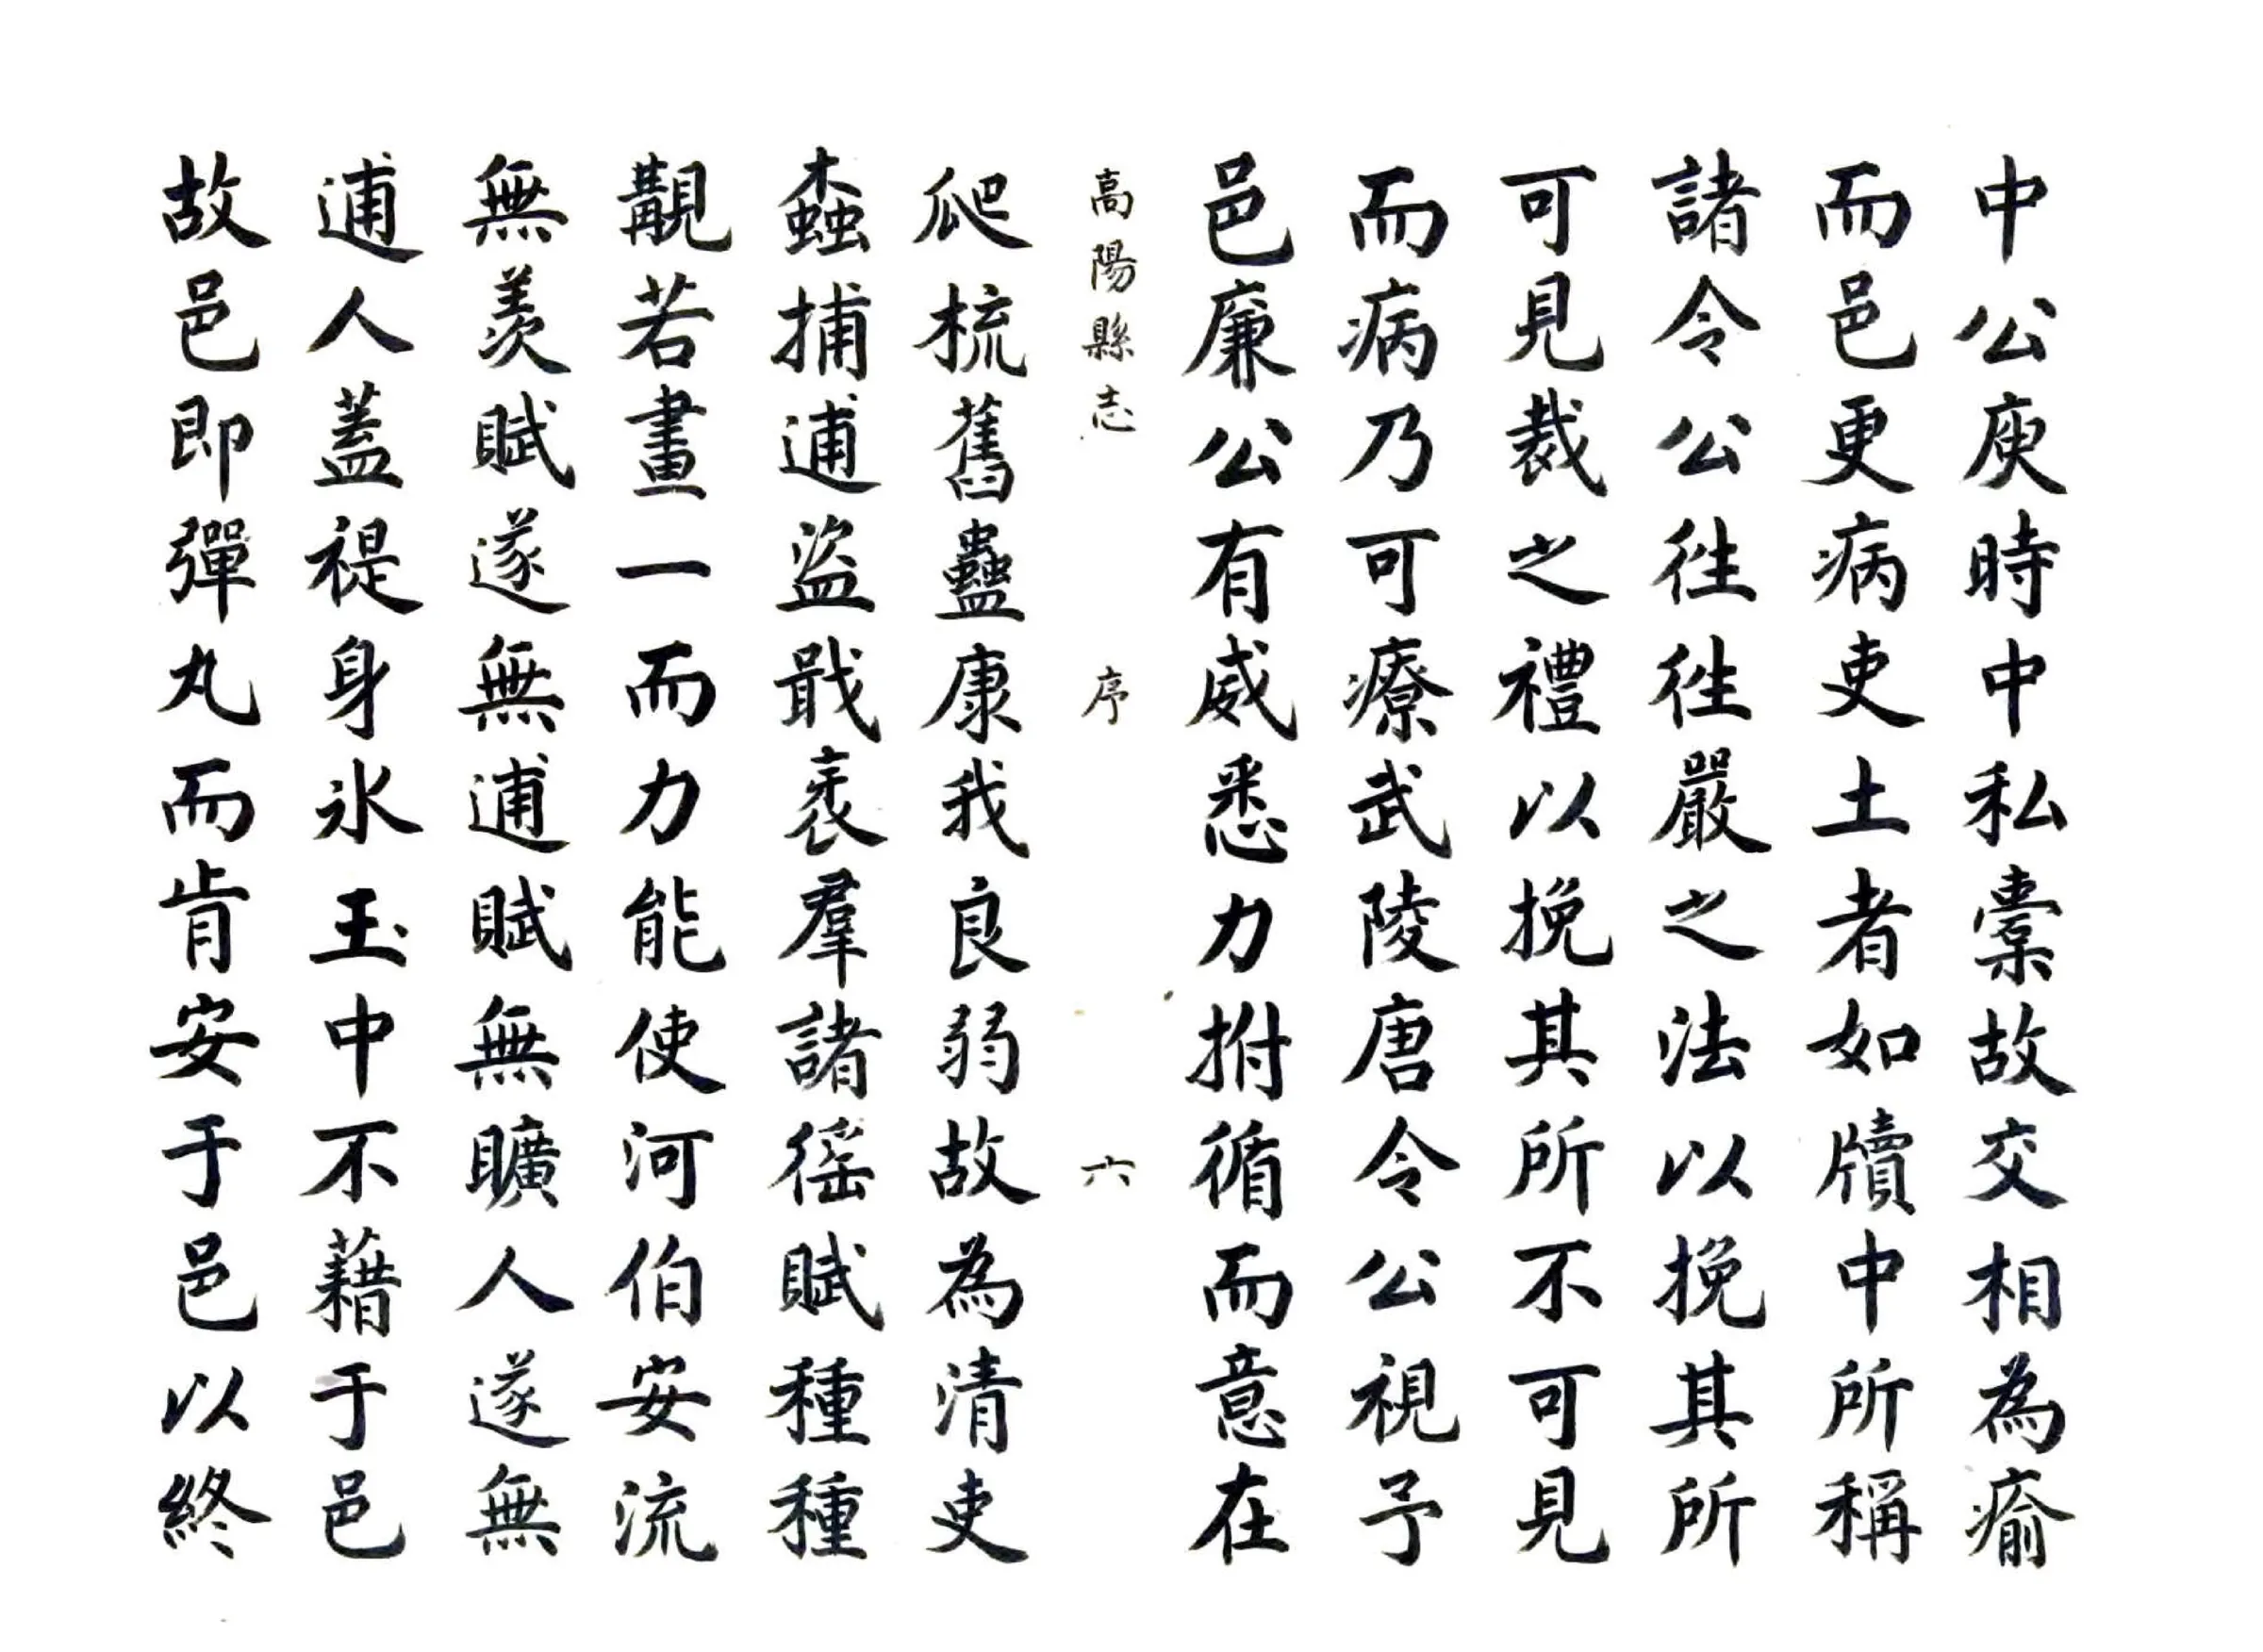 中公庾時中私橐故交相為瘉
而邑更病吏土者如牘中所稱
諸令公徃徃嚴之法以挽其所
可見裁之禮以挽其所不可見
而病乃可療武陵唐令公視予
邑廉公有威悉力拊循而意在
高陽縣志 序 六
爬梳舊蠱康我良弱故為清吏
螙捕逋盜戢衺羣諸徭賦種種
覯若畫一而力能使河伯安流
無羨賦遂無逋賦無曠人遂無
逋人蓋禔身氷玉中不藉于邑
故邑即彈丸而肯安于邑以終